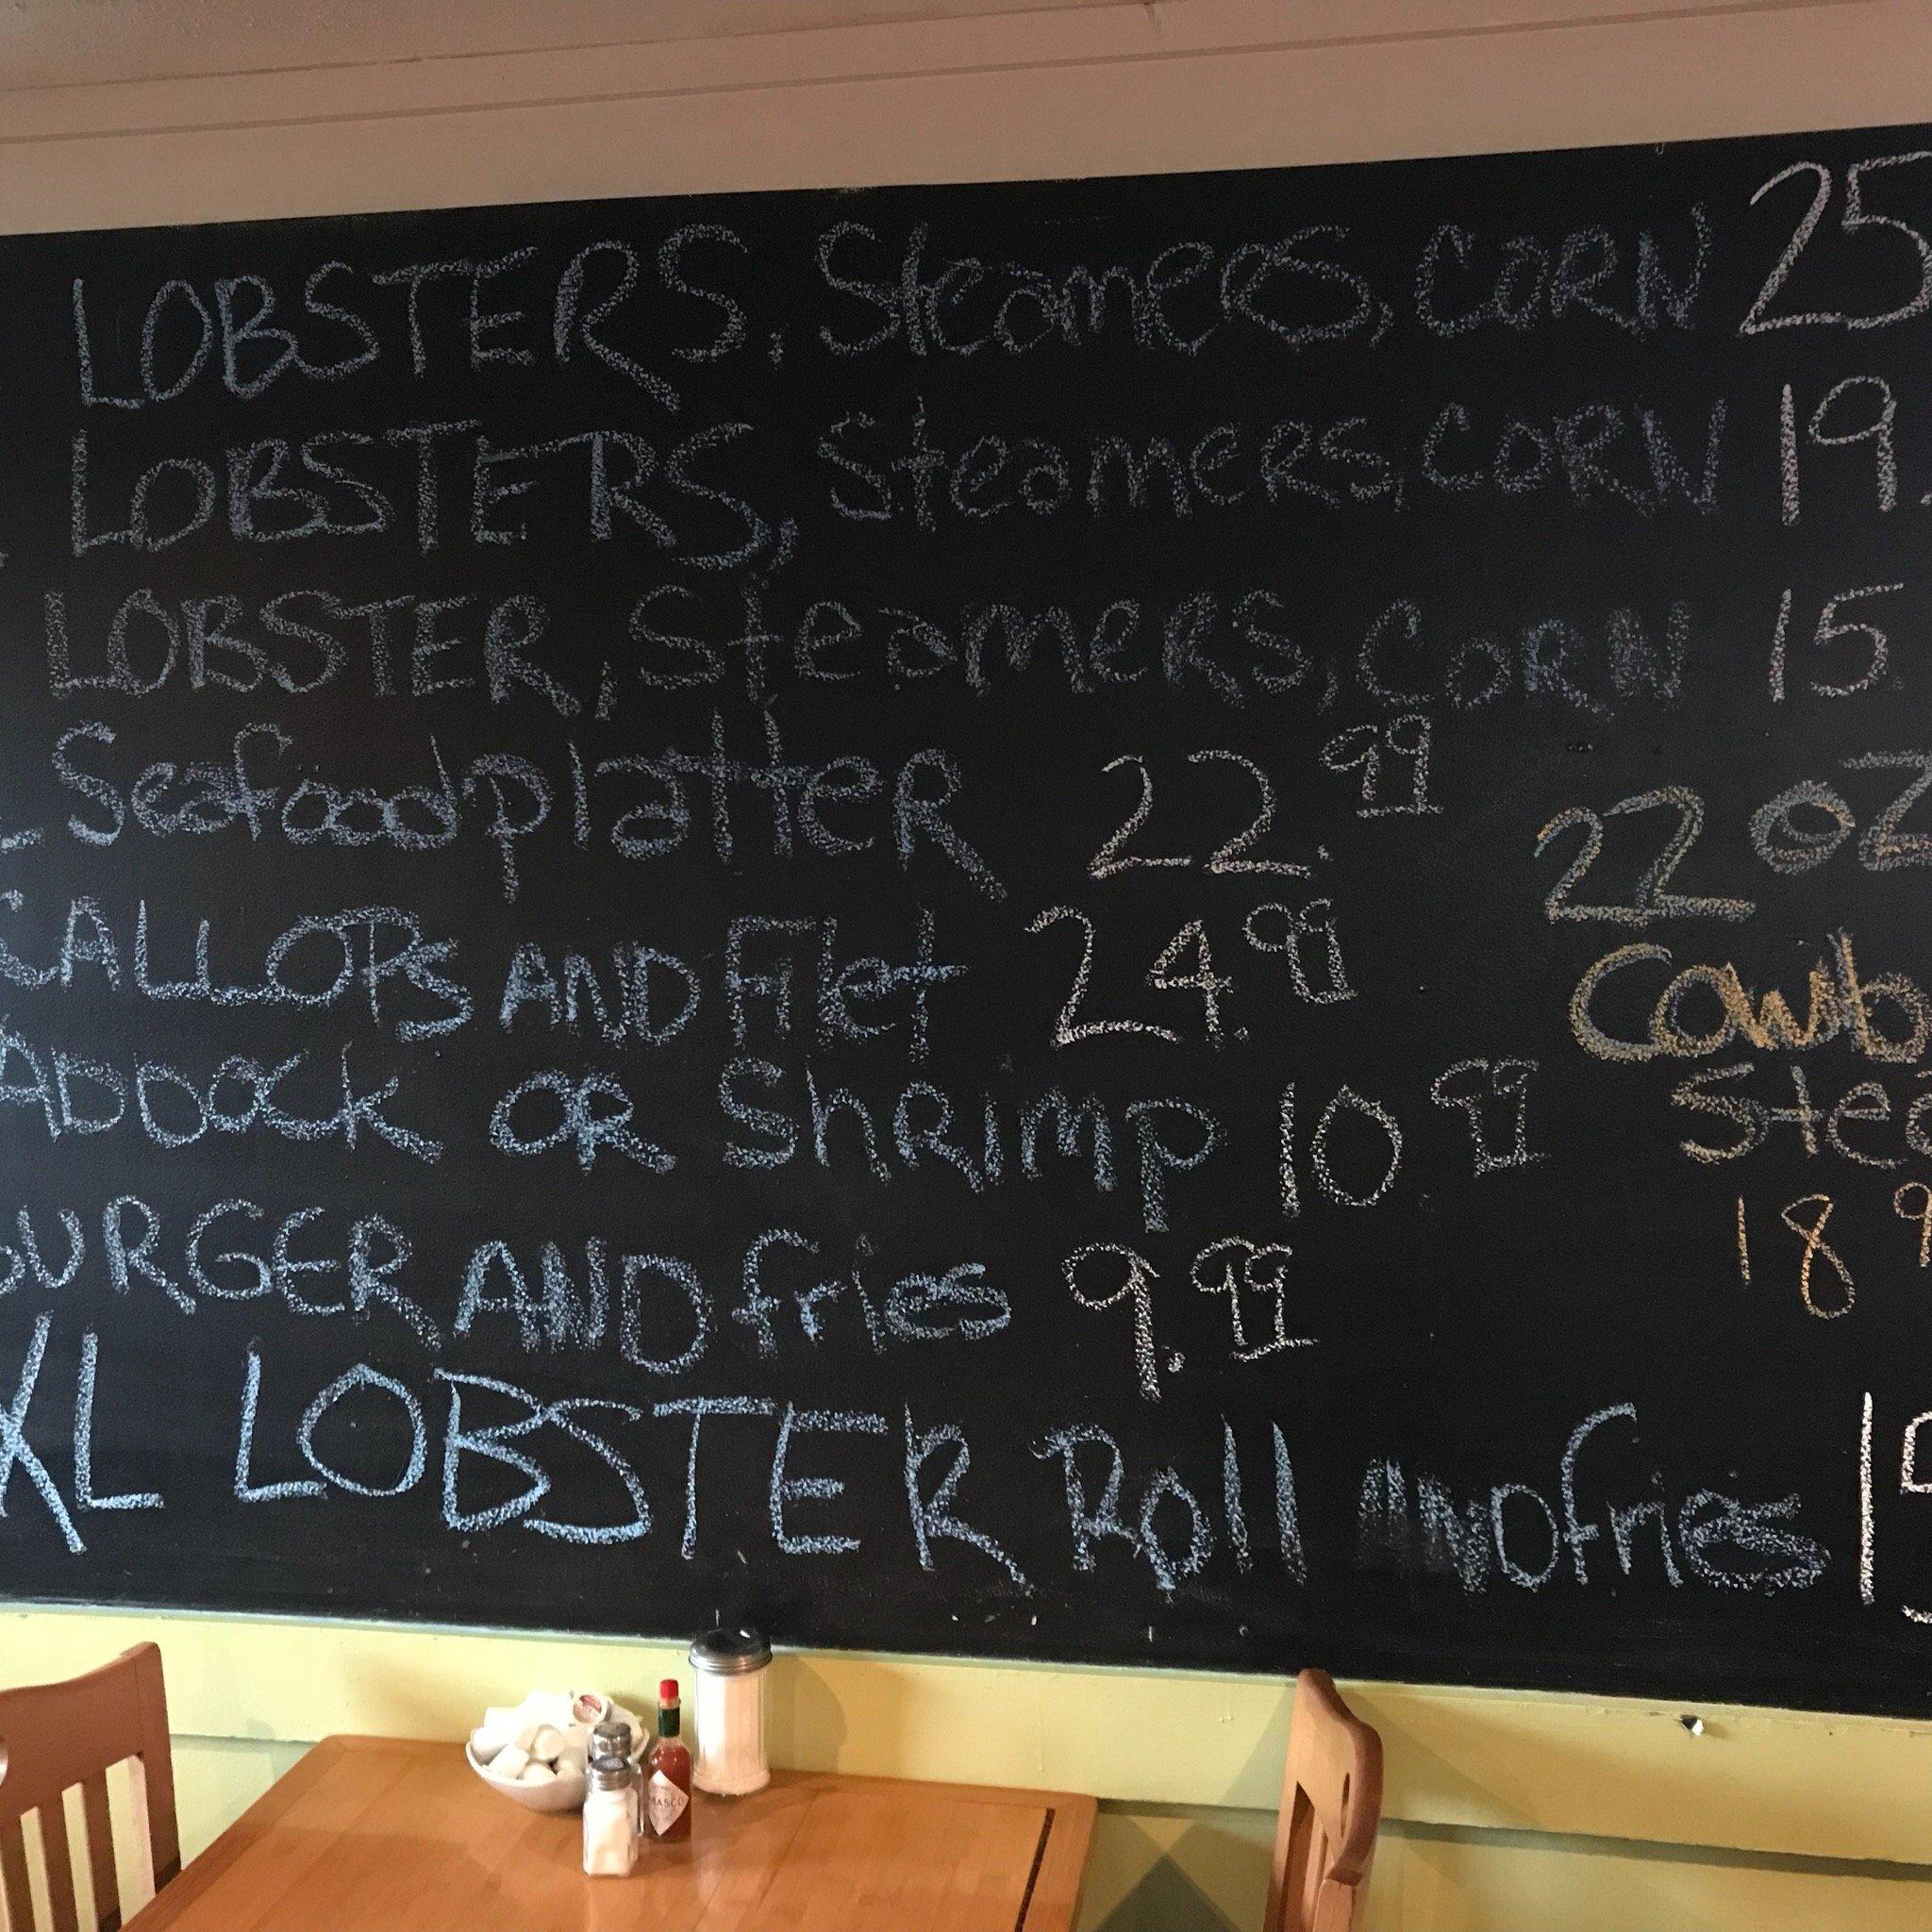 LOBSTERS, Steamers, CORN 25
LOBSTERS, SteameRS, CORN 19.
LOBSTER, SteameRS, CORN 15.
Seafood platteR 22.99
CALLOPS AND Filet 24.99
ADDOCK OR ShRimp 10 99
BURGER AND fries 9.99
XL LOBSTER Roll AND fries 15
22 OZ
Cowb
Stea
18 9
TABASCO